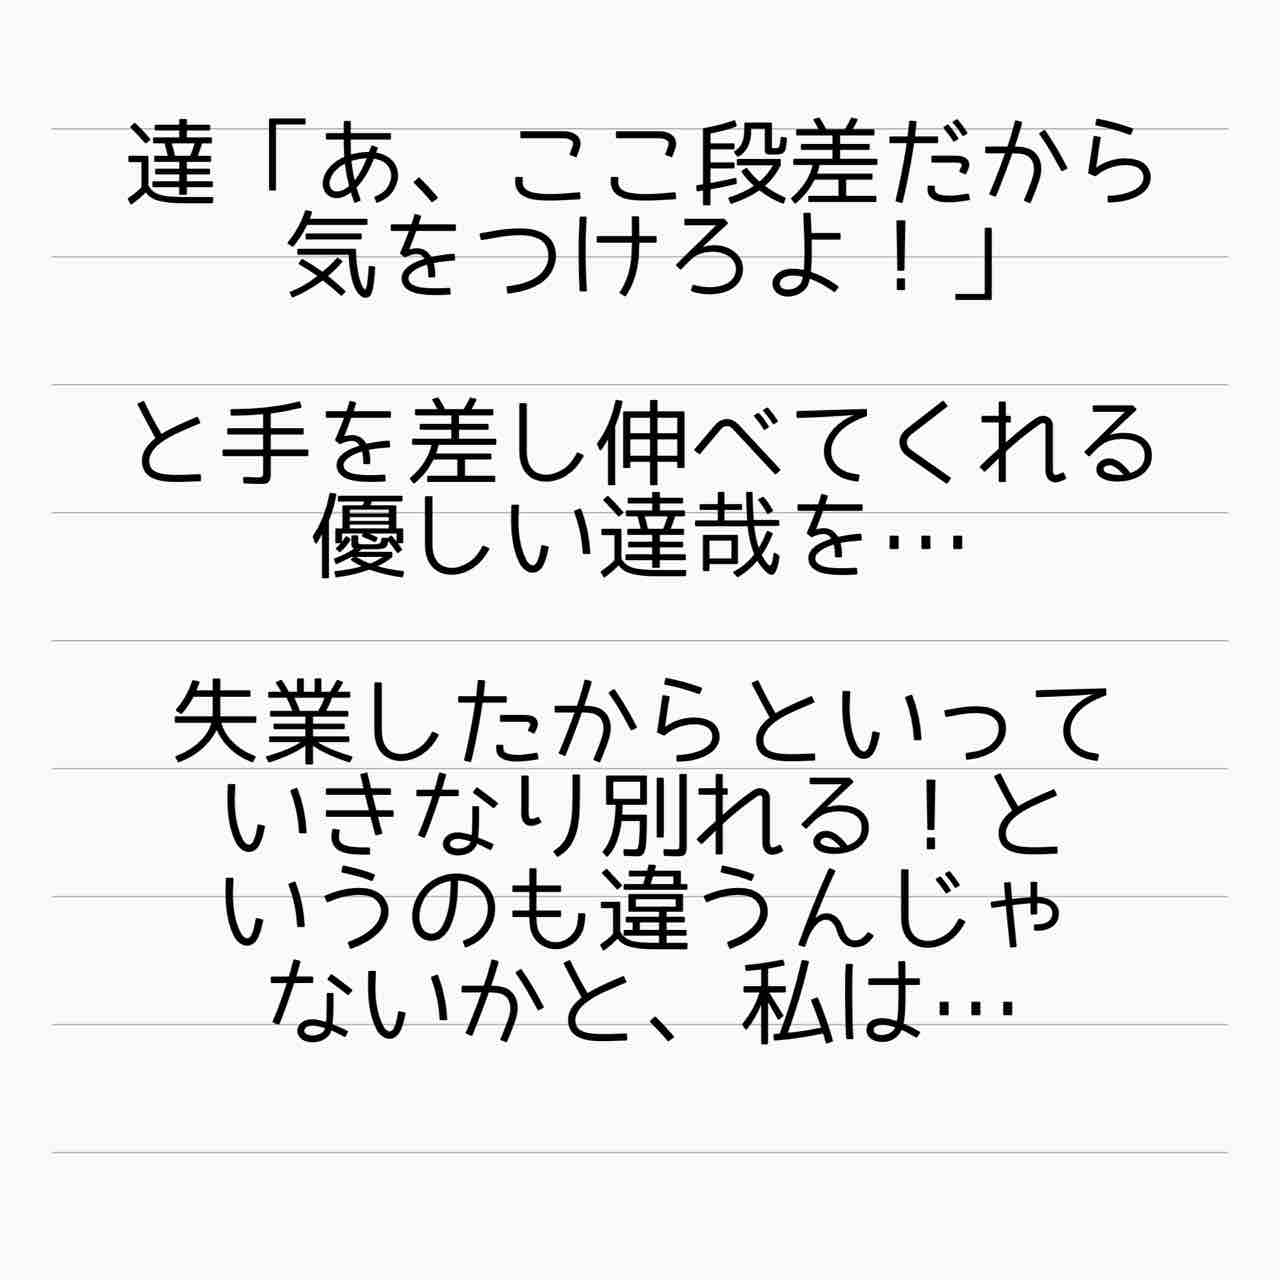 達「あ、ここ段差だから
気をつけろよ！」
と手を差し伸べてくれる
優しい達哉を…
失業したからといって
いきなり別れる！と
いうのも違うんじゃ
ないかと、私は…